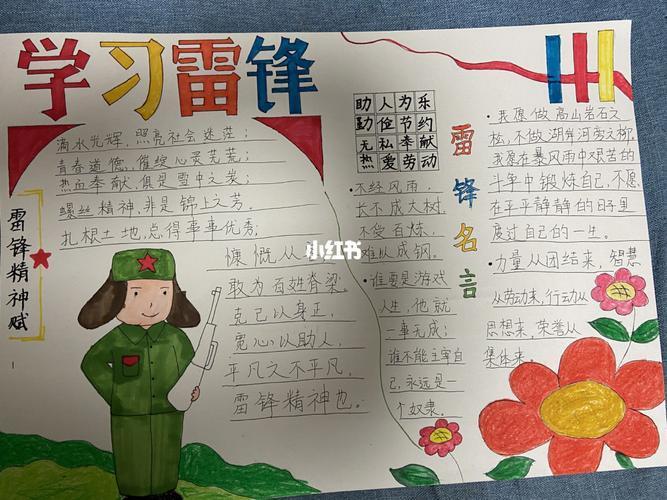 学习雷锋
滴水光辉，照亮社会迷茫；
青春道德，催绽心灵芜荒；
热血奉献，俱是雪中之炭；
螺丝精神，非是锦上之芳。
扎根土地，总得事事优秀；
慷慨从
敢为百姓脊梁。
克己以身正，
宽心以助人，
平凡又不平凡，
雷锋精神也。
雷锋精神赋
小红书
助人为乐
勤俭节约
无私奉献
热爱劳动
雷锋名言
·不经风雨，
长不成大树，
不受百炼，
难以成钢。
·谁要是游戏
人生，他就
一事无成；
谁不能主宰自
己，永远是一
个奴隶。
·我愿做高山岩石之
松，不做湖岸河旁之柳。
我愿在暴风雨中艰苦的
斗争中锻炼自己，不愿
在平平静静的日子里
度过自己的一生。
·力量从团结来，智慧
从劳动来，行动从
思想来，荣誉从
集体来。